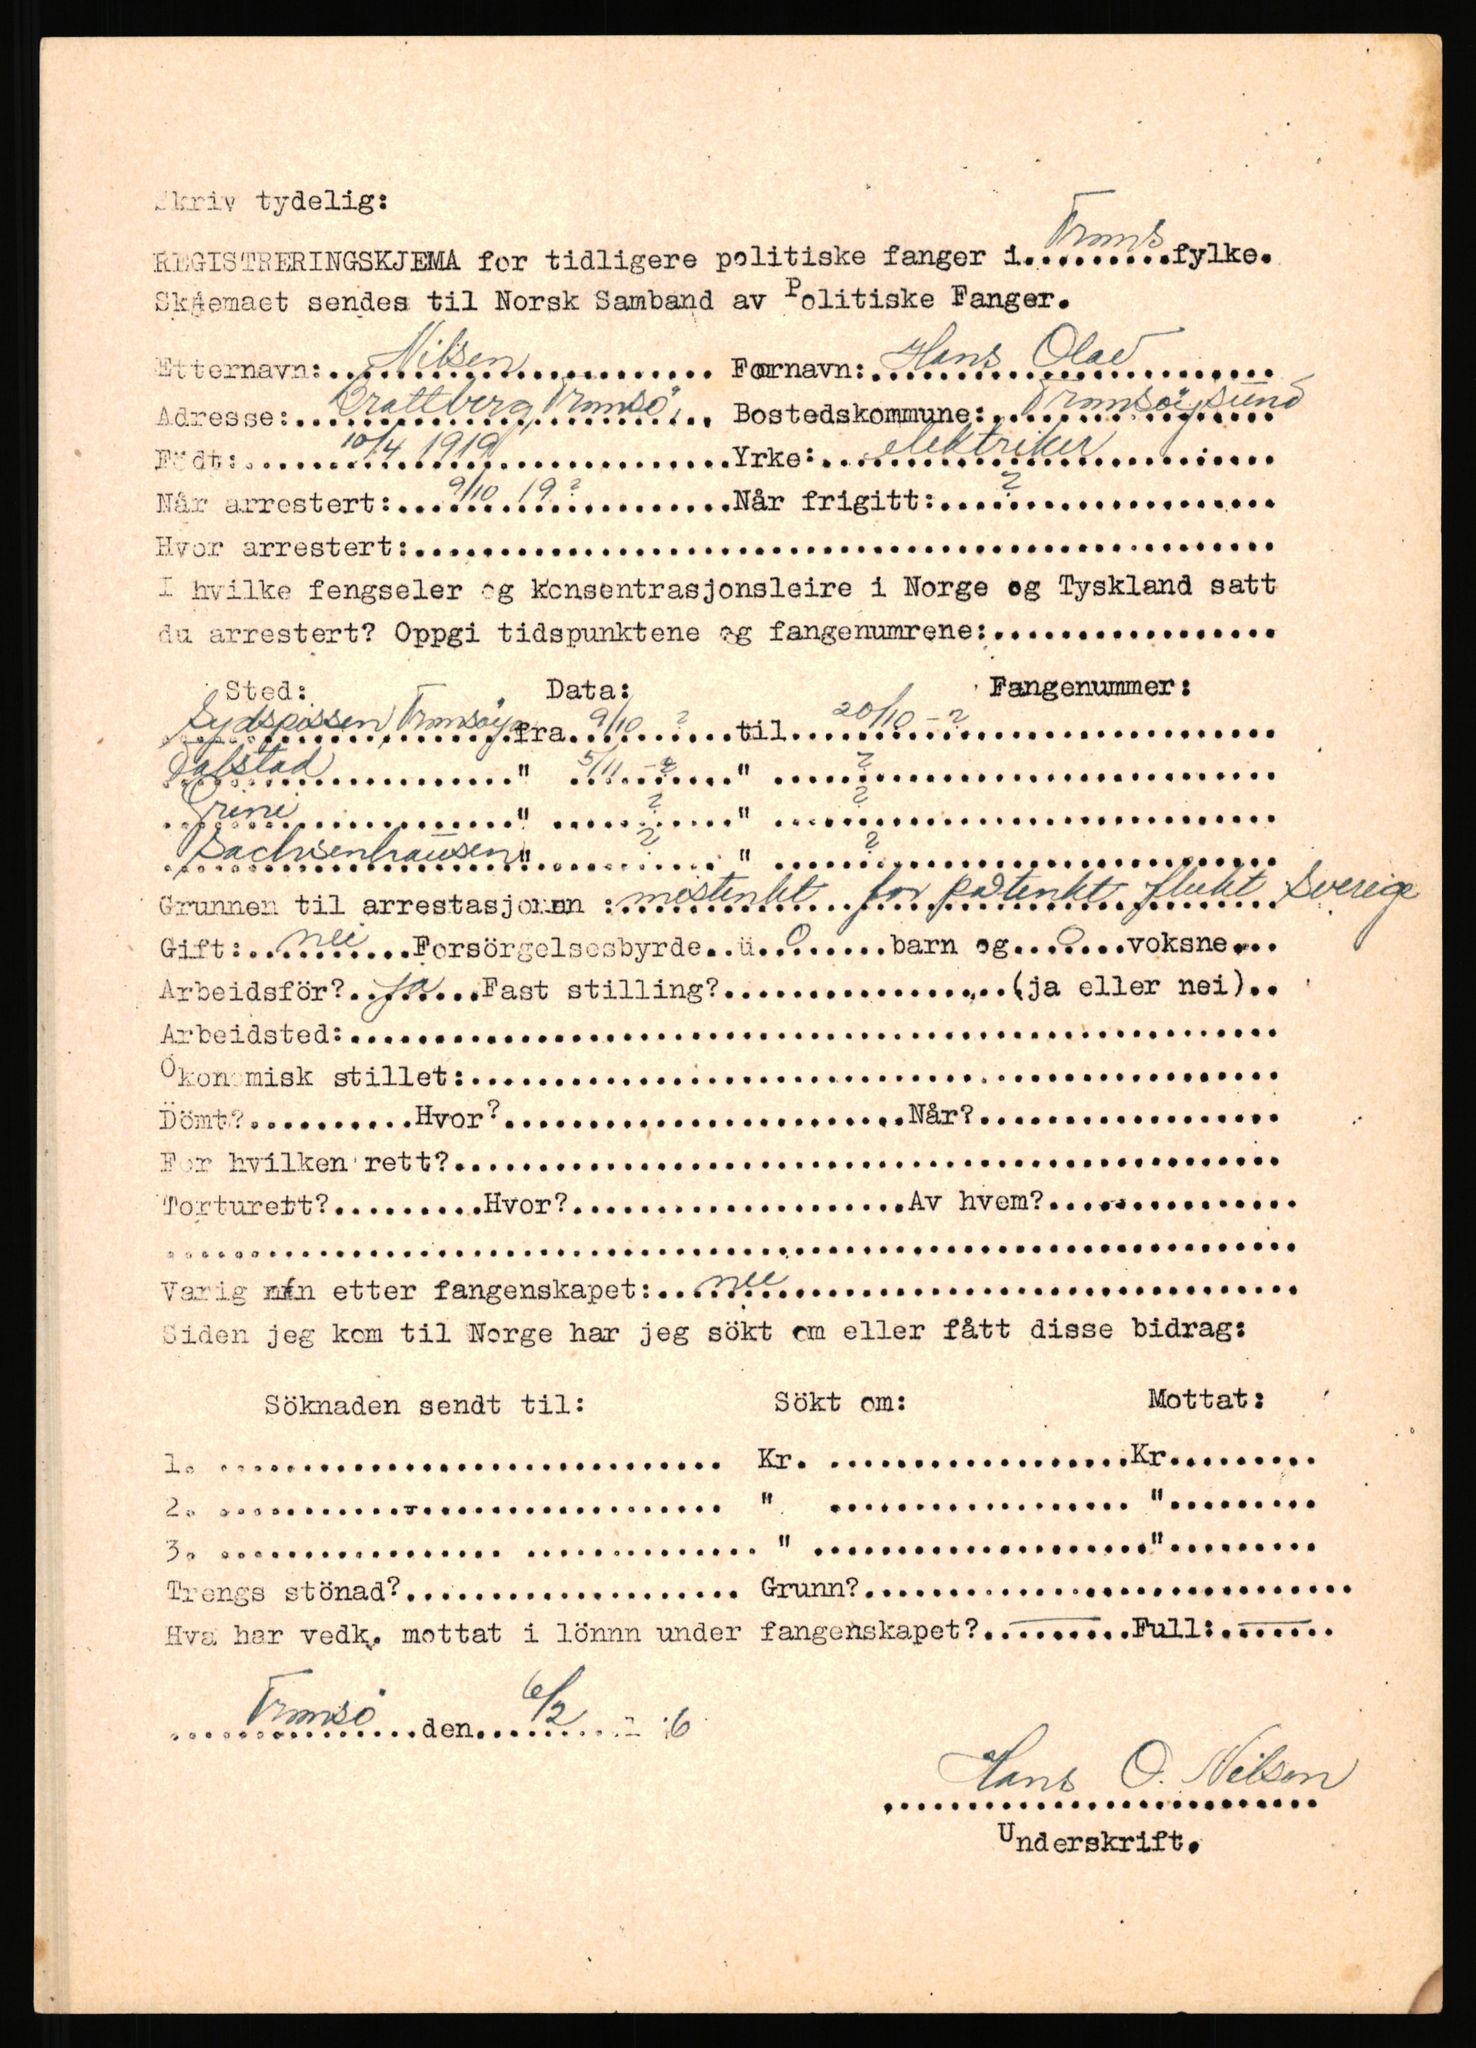 Skriv tydelig:
REGISTRERINGSKJEMA for tidligere politiske fanger i. Troms fylke.
Skjemaet sendes til Norsk Samband av Politiske Fanger.
Etternavn: Nilsen Fornavn: Hans Olav
Adresse: Brattberg, Tromsö, Bostedskommune: Tromsöysund
Födt: 10/4 1919 Yrke: elektriker
Når arrestert: 9/10 19? Når frigitt: ?
Hvor arrestert:
I hvilke fengseler og konsentrasjonsleire i Norge og Tyskland satt
du arrestert? Oppgi tidspunktene og fangenumrene:
Sted: Data: Fangenummer:
Sydspissen, Tromsöya fra 9/10 ? til 20/10 - ?
Falstad " 5/11 - ? " ?
Grini " ? " ?
Sachsenhausen " ? " ?
Grunnen til arrestasjonen : mistenkt for påtenkt flukt Sverige
Gift: nei Forsörgelsesbyrde 0 barn og 0 voksne
Arbeidsför? ja Fast stilling? (ja eller nei)
Arbeidsted:
Ökonomisk stillet:
Dömt? Hvor? Når?
For hvilken rett?
Torturert? Hvor? Av hvem?
Varig mén etter fangenskapet: nei
Siden jeg kom til Norge har jeg sökt om eller fått disse bidrag:
Söknaden sendt til: Sökt om: Mottat:
1. Kr. Kr
2. " "
3. " "
Trengs stönad? Grunn?
Hva har vedk. mottat i lönnn under fangenskapet? — Full: —
Tromsö den 6/2 6
Hans O. Nilsen
Underskrift.